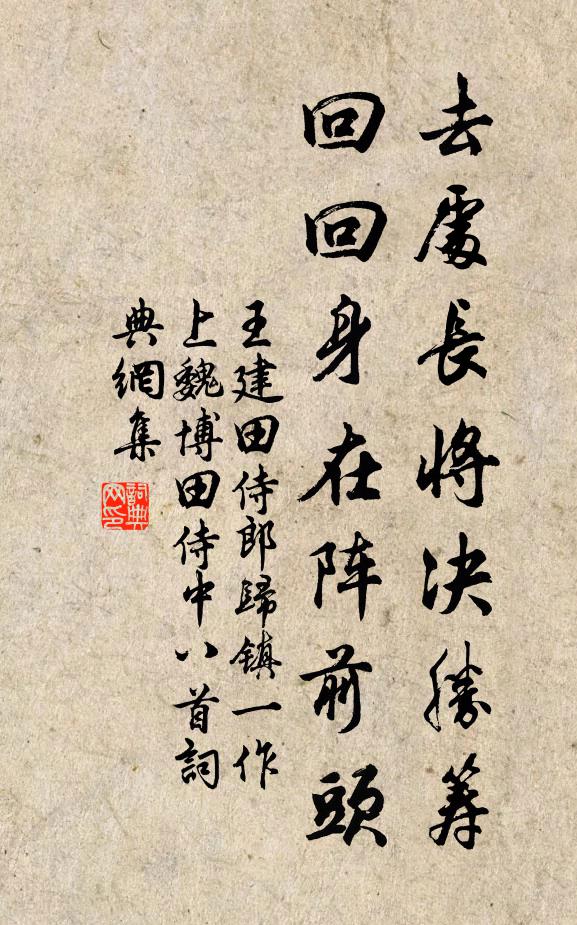 去處長將决勝籌
回回身在阵前頭
王建田侍郎歸鎮一作
上魏博田侍中八首詞
典網集
詞典
网印